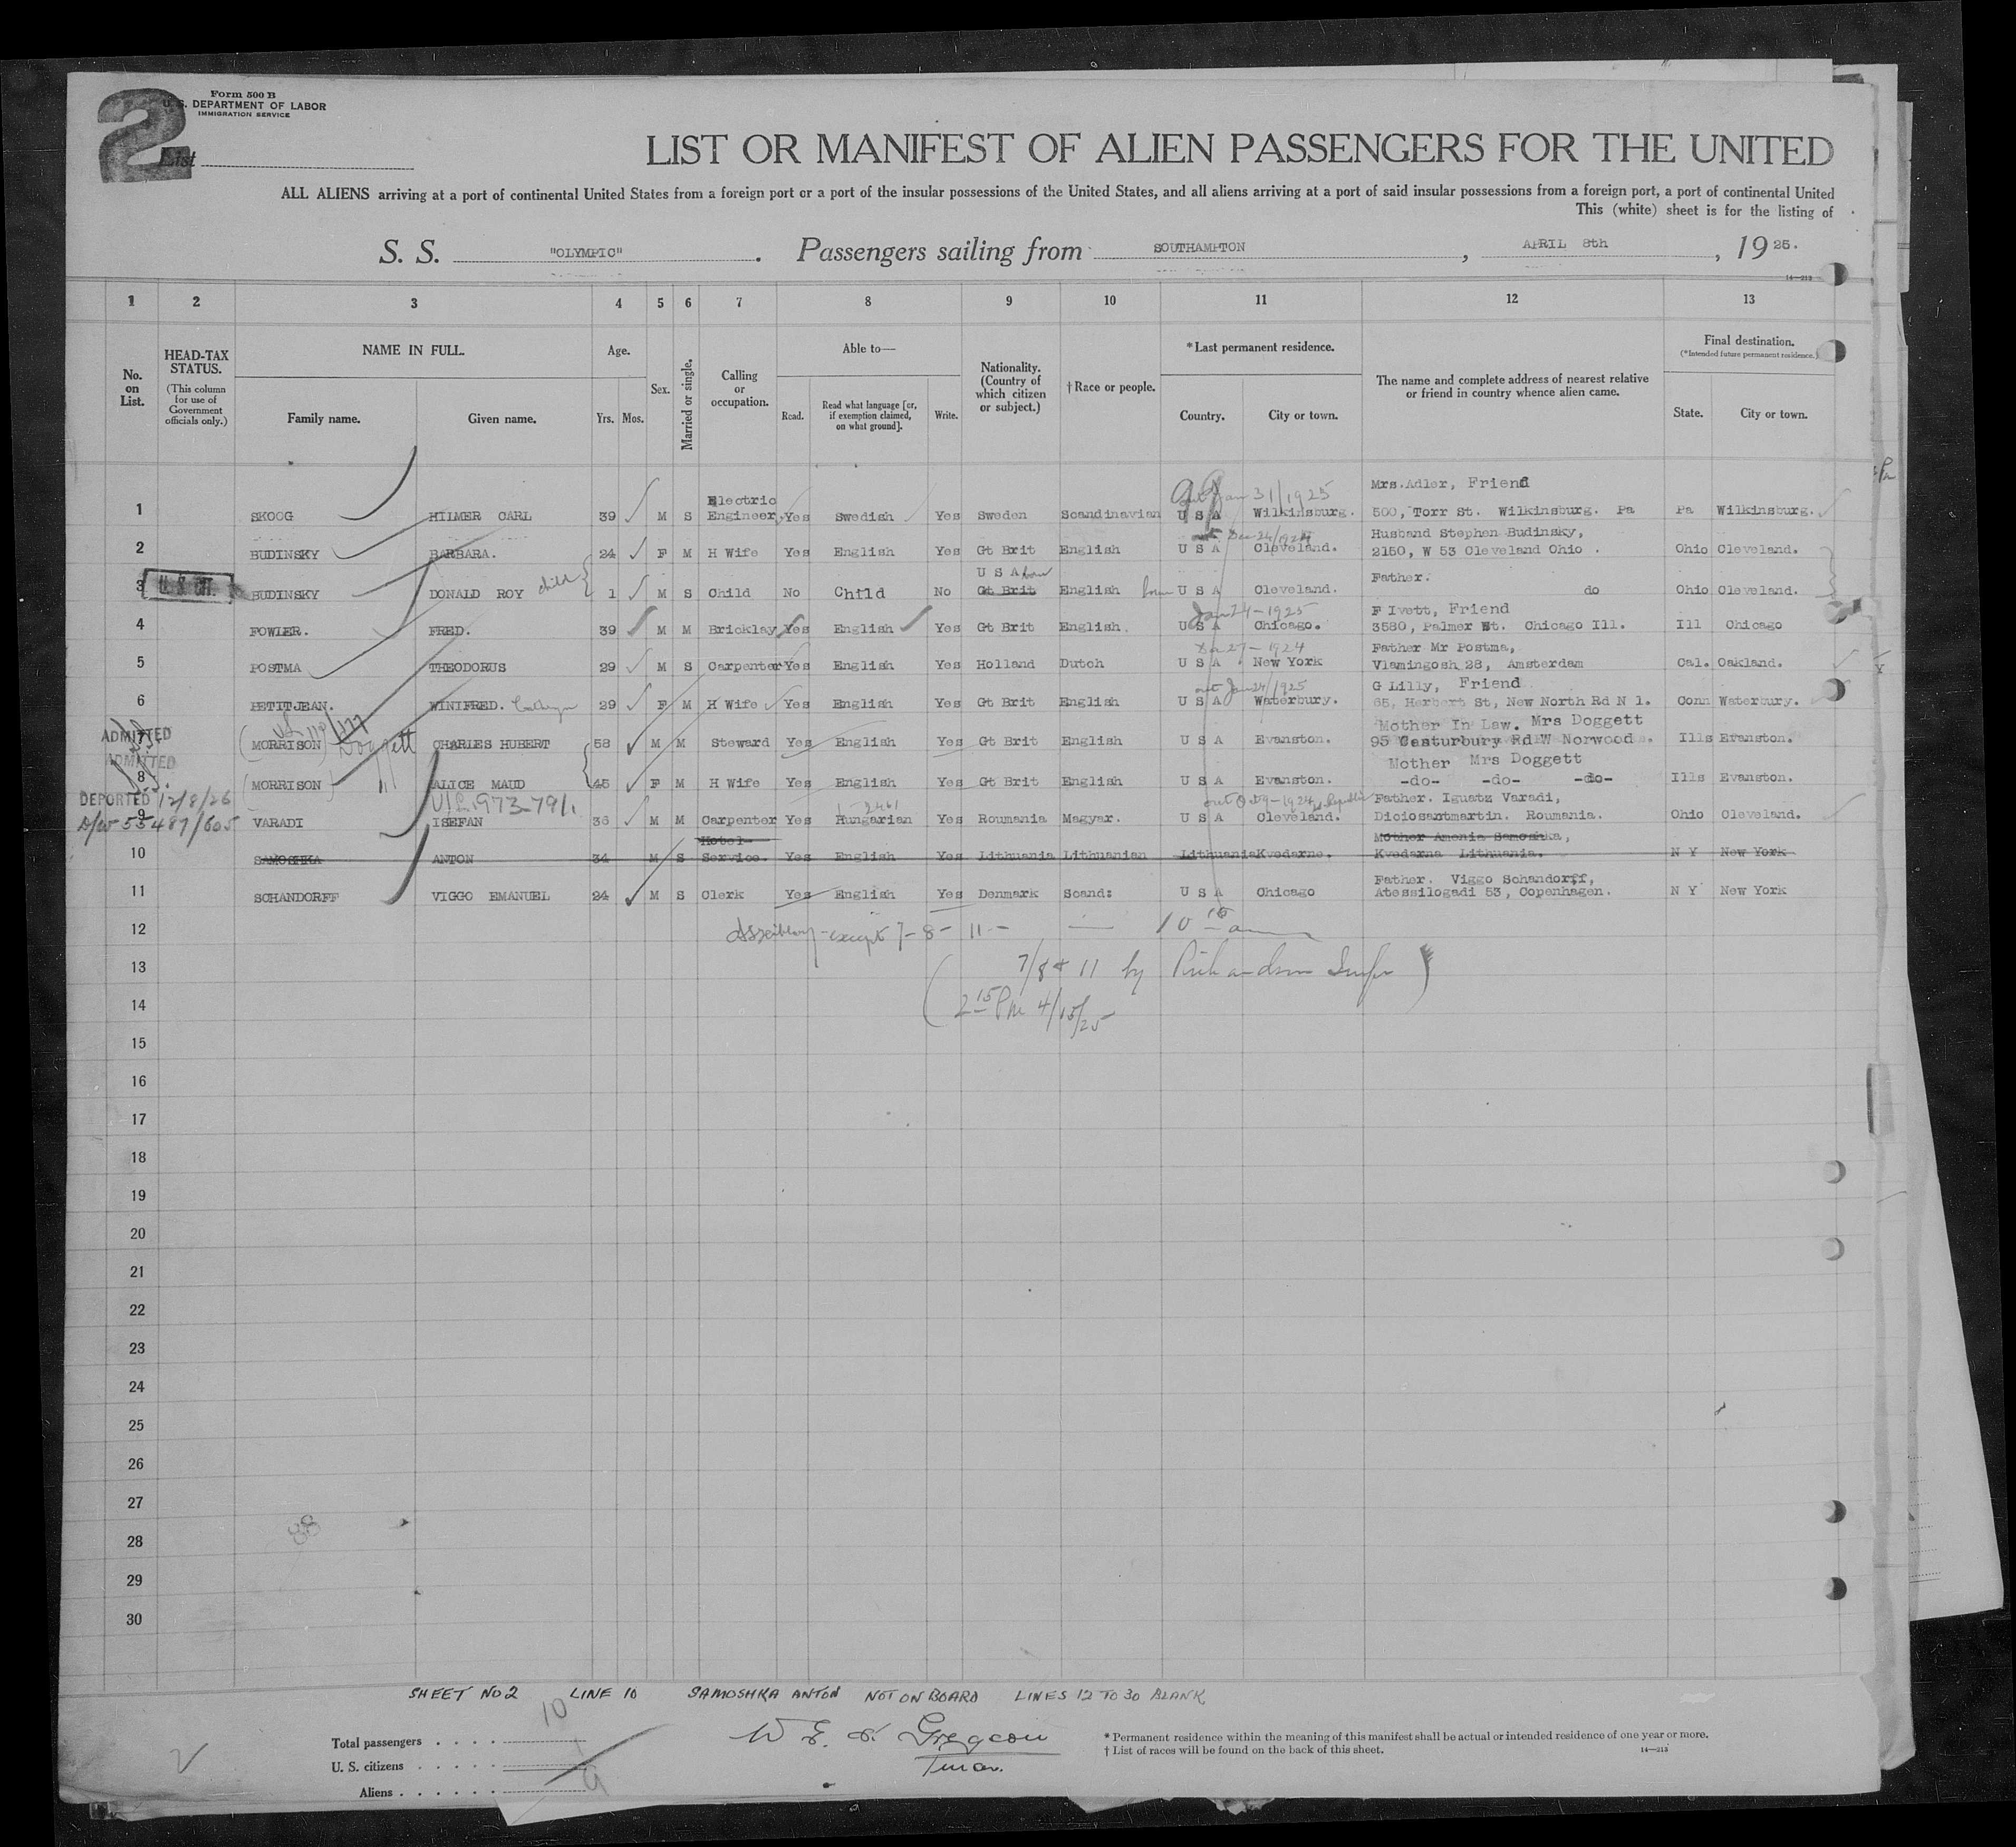 Form 500 B
U. S. DEPARTMENT OF LABOR
IMMIGRATION SERVICE
2
List
LIST OR MANIFEST OF ALIEN PASSENGERS FOR THE UNITED
ALL ALIENS arriving at a port of continental United States from a foreign port or a port of the insular possessions of the United States, and all aliens arriving at a port of said insular possessions from a foreign port, a port of continental United
This (white) sheet is for the listing of
S. S. "OLYMPIC". Passengers sailing from SOUTHAMPTON, APRIL 8th, 1925.
14—213
1 2 3 4 5 6 7 8 9 10 11 12 13
No. on List.
HEAD-TAX STATUS.
(This column for use of Government officials only.)
NAME IN FULL.
Family name. Given name.
Age.
Yrs. Mos.
Sex.
Married or single.
Calling or occupation.
Able to—
Read. Read what language [or, if exemption claimed, on what ground]. Write.
Nationality. (Country of which citizen or subject.)
† Race or people.
* Last permanent residence.
Country. City or town.
The name and complete address of nearest relative or friend in country whence alien came.
Final destination.
(*Intended future permanent residence.)
State. City or town.
Electric Jan 31/1925 Mrs. Adler, Friend
1 SKOOG HILMER CARL 39 M S Engineer, Yes Swedish Yes Sweden Scandinavian U S A Wilkinsburg. 500, Torr St. Wilkinsburg. Pa Pa Wilkinsburg.
out Dec 24/1924 Husband Stephen Budinsky,
2 BUDINSKY BARBARA. 24 F M H Wife Yes English Yes Gt Brit English U S A Cleveland. 2150, W 53 Cleveland Ohio. Ohio Cleveland.
U S A born Father.
3 U.S. CIT. BUDINSKY DONALD ROY child 1 M S Child No Child No Gt Brit English born U S A Cleveland. do Ohio Cleveland.
Jan 24-1925 F Ivett, Friend
4 FOWLER. FRED. 39 M M Bricklay Yes English Yes Gt Brit English. U S A Chicago. 3580, Palmer St. Chicago Ill. Ill Chicago
27-1924 Father Mr Postma,
5 POSTMA THEODORUS 29 M S Carpenter Yes English Yes Holland Dutch U S A New York Vlamingosh 28, Amsterdam Cal. Oakland.
out Jan 24/1925 G Lilly, Friend
6 PETITJEAN. WINIFRED. 29 F M H Wife Yes English Yes Gt Brit English U S A Waterbury. 65, Herbert St, New North Rd N 1. Conn Waterbury.
Mother In Law. Mrs Doggett
ADMITTED
7 (MORRISON) Doggett CHARLES HUBERT 58 M M Steward Yes English Yes Gt Brit English U S A Evanston. 95 Canturbury Rd W Norwood. Ills Evanston.
ADMITTED
Mother Mrs Doggett
8 (MORRISON) " ALICE MAUD 45 F M H Wife Yes English Yes Gt Brit English U S A Evanston. -do- -do- -do- Ills Evanston.
DEPORTED 12/8/26 out Oct 9-1924 Father. Iguatz Varadi,
9 55487/605 VARADI ISEFAN 36 M M Carpenter Yes Hungarian Yes Roumania Magyar. U S A Cleveland. Diciosantmartin. Roumania. Ohio Cleveland.
Hotel- Mother Amenia Samoshka,
10 SAMOSHKA ANTON 34 M S Service. Yes English Yes Lithuania Lithuanian Lithuania Kvedarne. Kvedarna Lithuania. N Y New York
Father. Viggo Schandorff,
11 SCHANDORFF VIGGO EMANUEL 24 M S Clerk Yes English Yes Denmark Scand: U S A Chicago Atessilogadi 53, Copenhagen. N Y New York
12 except 7-8-11- 10 15 am
13 (7/8 & 11 by Richardson Inspr)
14 2 15 PM 4/15/25
15
16
17
18
19
20
21
22
23
24
25
26
27
28
29
30
SHEET NO 2 LINE 10 SAMOSHKA ANTON NOT ON BOARD LINES 12 TO 30 BLANK
Total passengers . . . . 10
U. S. citizens . . . . . 1
Aliens . . . . . . 9
* Permanent residence within the meaning of this manifest shall be actual or intended residence of one year or more.
† List of races will be found on the back of this sheet.
14—213